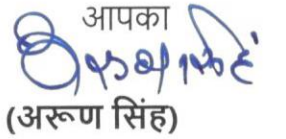 आपका
(अरूण सिंह)